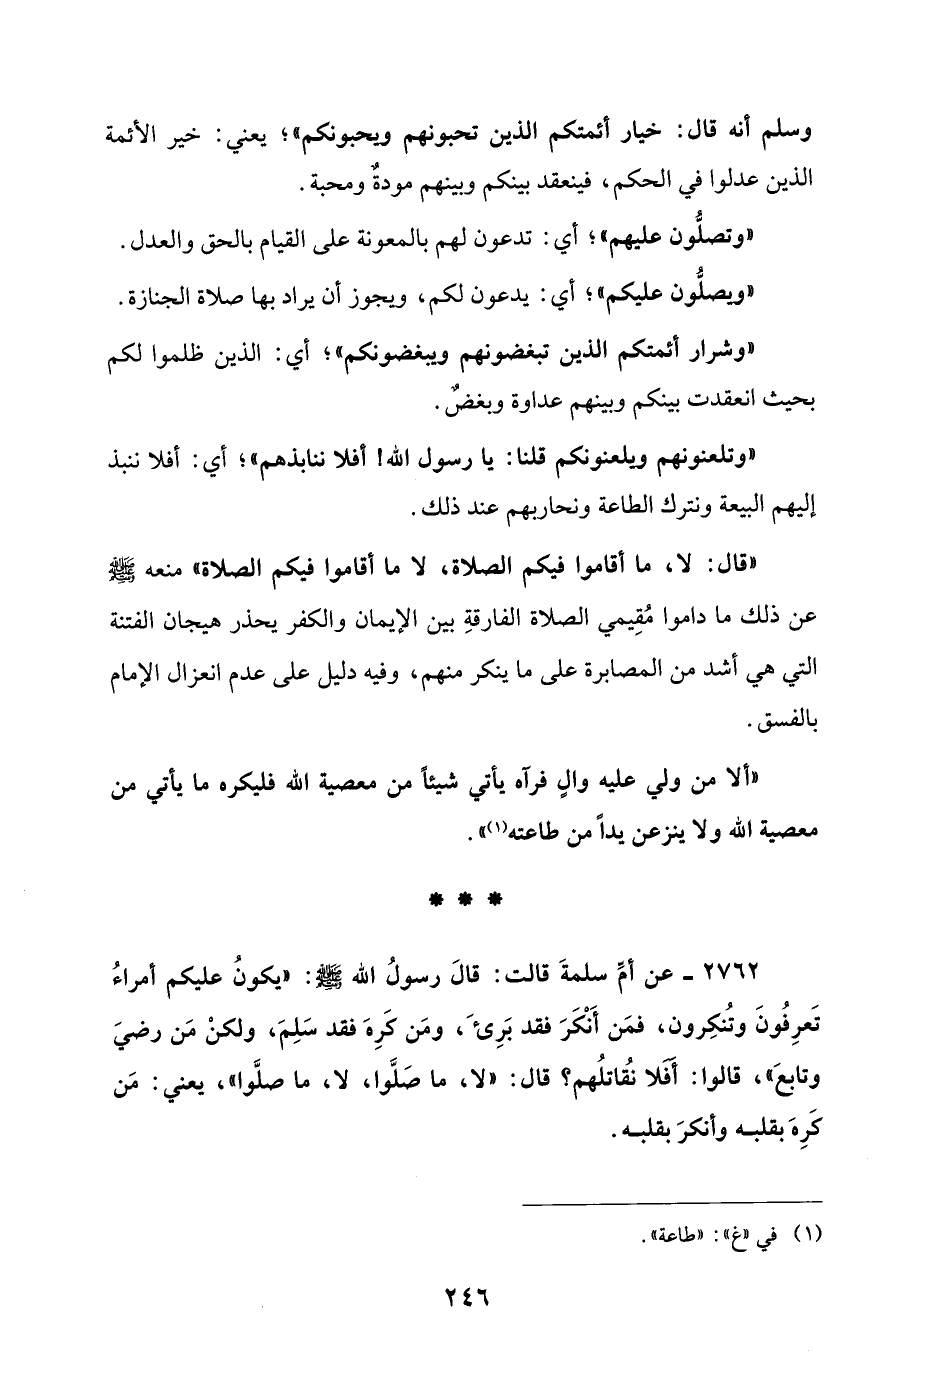 وسلم أنه قال: خيار أئمتكم الذين تحبونهم ويحبونكم»؛ يعني: خير الأئمة
الذين عدلوا في الحكم، فينعقد بينكم وبينهم مودةٌ ومحبة.
«وتصلُّون عليهم»؛ أي: تدعون لهم بالمعونة على القيام بالحق والعدل.
«ويصلُّون عليكم»؛ أي: يدعون لكم، ويجوز أن يراد بها صلاة الجنازة.
«وشرار أئمتكم الذين تبغضونهم ويبغضونكم»؛ أي: الذين ظلموا لكم
بحيث انعقدت بينكم وبينهم عداوة وبغضٌ.
«وتلعنونهم ويلعنونكم قلنا: يا رسول الله! أفلا ننابذهم»؛ أي: أفلا ننبذ
إليهم البيعة ونترك الطاعة ونحاربهم عند ذلك.
«قال: لا، ما أقاموا فيكم الصلاة، لا ما أقاموا فيكم الصلاة» منعه ﷺ
عن ذلك ما داموا مُقِيمي الصلاة الفارقةِ بين الإيمان والكفر يحذر هيجان الفتنة
التي هي أشد من المصابرة على ما ينكر منهم، وفيه دليل على عدم انعزال الإمام
بالفسق.
«ألا من ولي عليه والٍ فرآه يأتي شيئاً من معصية الله فليكره ما يأتي من
معصية الله ولا ينزعن يداً من طاعته(١)».
* * *
٢٧٦٢ - عن أمِّ سلمةَ قالت: قالَ رسولُ الله ﷺ: «يكونُ عليكم أمراءُ
تَعرِفُونَ وتُنكِرون، فمَن أَنْكَرَ فقد بَرِئَ، ومَن كَرِهَ فقد سَلِمَ، ولكنْ مَن رضيَ
وتابعَ»، قالوا: أَفَلا نُقاتلُهم؟ قال: «لا، ما صَلَّوا، لا، ما صلَّوا»، يعني: مَن
كَرِهَ بقلبه وأنكرَ بقلبه.
(١) في «غ»: «طاعة».
٢٤٦